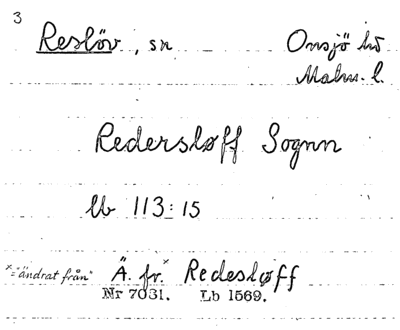 3
Reslöv, sn Onsjö hd
Malm. l.
Redersløff Sognn
lb 113:15
x="ändrat från" Ä. fr.x Redesløff
Nr 7031. Lb 1569.